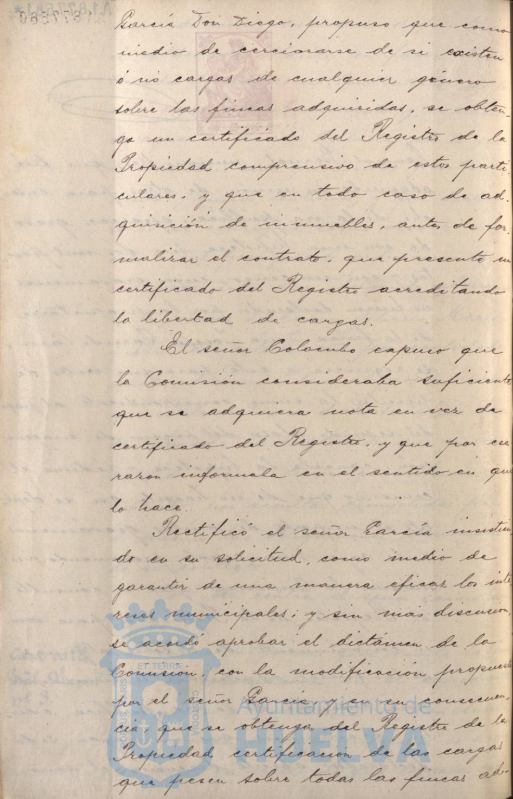 García Don Diego, propuso que como
medio de cerciorarse de si existen
ó nó cargas de cualquier género
sobre las fincas adquiridas, se obten-
ga un certificado del Registro de la
Propiedad comprensivo de estos parti-
culares, y que en todo caso de ad-
quisición de inmuebles, antes de for-
malizar el contrato, que presente un
certificado del Registro acreditando
la libertad de cargas.
El señor Colombo expuso que
la Comisión consideraba suficiente
que se adquiera nota en vez de
certificado del Registro, y que por esa
razon informaba en el sentido en que
lo hace.
Rectificó el señor García insistien-
do en su solicitud, como medio de
garantir de una manera eficaz los inte-
reses municipales; y sin más discusion,
se acordó aprobar el dictámen de la
Comisión, con la modificación propuesta
por el señor García, y en su consecuen-
cia, que se obtenga del Registro de la
Propiedad certificación de las cargas
que pesen sobre todas las fincas ad-
ET TERRA
Ayuntamiento de
HUELVA